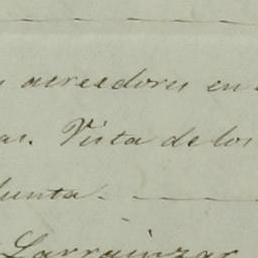 acreedores en
as. Vista de los
Junta.
Larrainzar